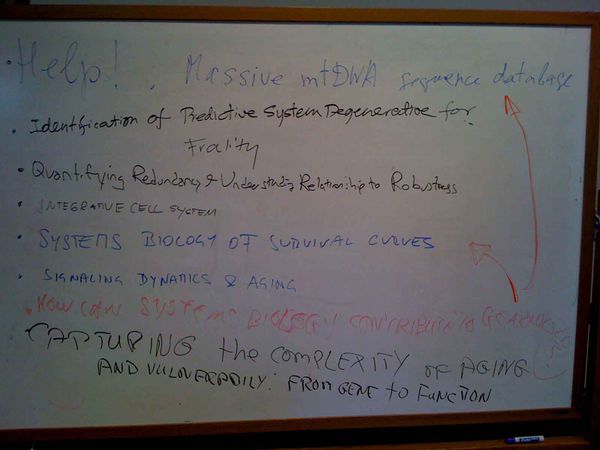 • Help! . Massive mtDNA sequence database
• Identification of Predictive System Degenerative for
Frailty
• Quantifying Redundancy & Understudig Relationship to Robustness
• INTEGRATIVE CELL SYSTEM
• SYSTEMS BIOLOGY OF SURVIVAL CURVES
• SIGNALING DYNAMICS & AGING
• HOW CAN SYSTEMS BIOLOGY CONTRIBUTE TO
CAPTURING the COMPLEXITY OF AGING
AND VULNERABILY: FROM GENE to FUNCTION